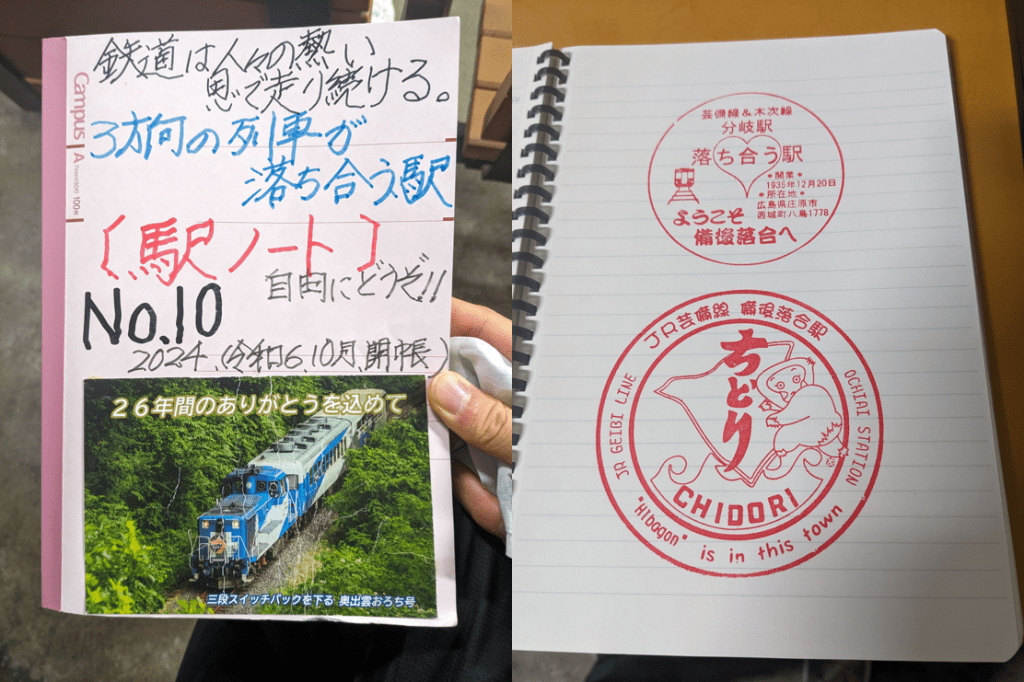 鉄道は人々の熱い
思いで走り続ける。
3方向の列車が
落ち合う駅
〔駅ノート〕
自由にどうぞ!!
No.10
2024.(令和6.10月.開帳)
Campus
A 7mm×30行 100枚
26年間のありがとうを込めて
三段スイッチバックを下る 奥出雲おろち号
芸備線&木次線
分岐駅
落ち合う駅
•開業•
1935年12月20日
•所在地•
広島県庄原市
西城町八鳥1778
ようこそ
備後落合へ
JR芸備線 備後落合駅
ちどり
JR GEIBI LINE
OCHIAI STATION
CHIDORI
"Hibagon" is in this town